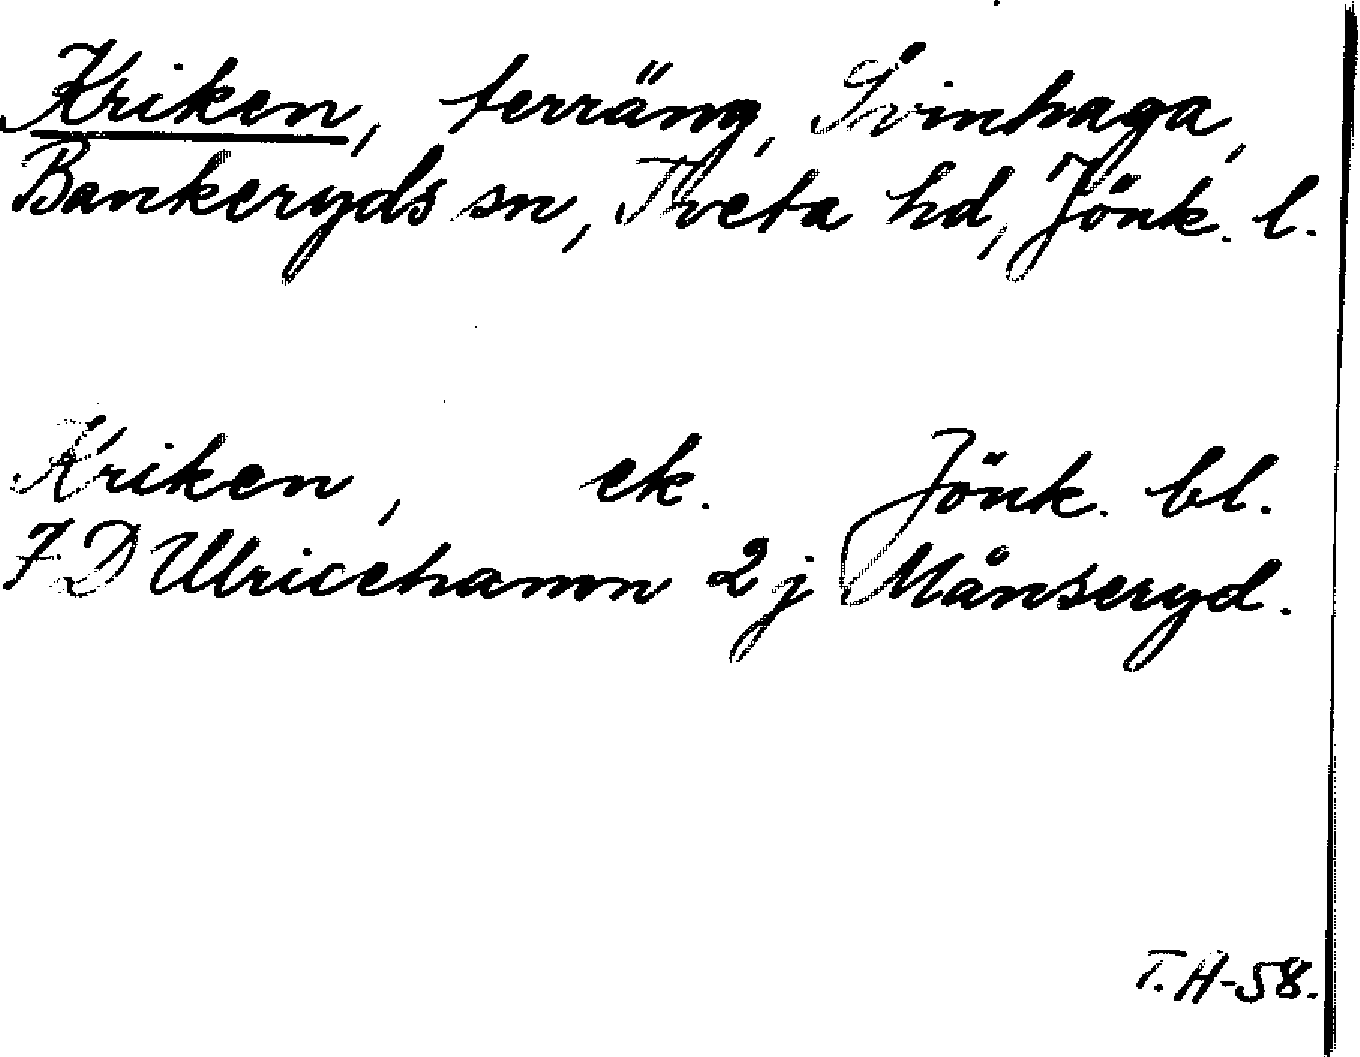 Kriken, terräng, Svinhaga,
Bankeryds sn, Tveta hd, Jönk. l.
Kriken, ek. Jönk. bl.
7 D Ulricehamn 2 j Månseryd.
T. H-58.